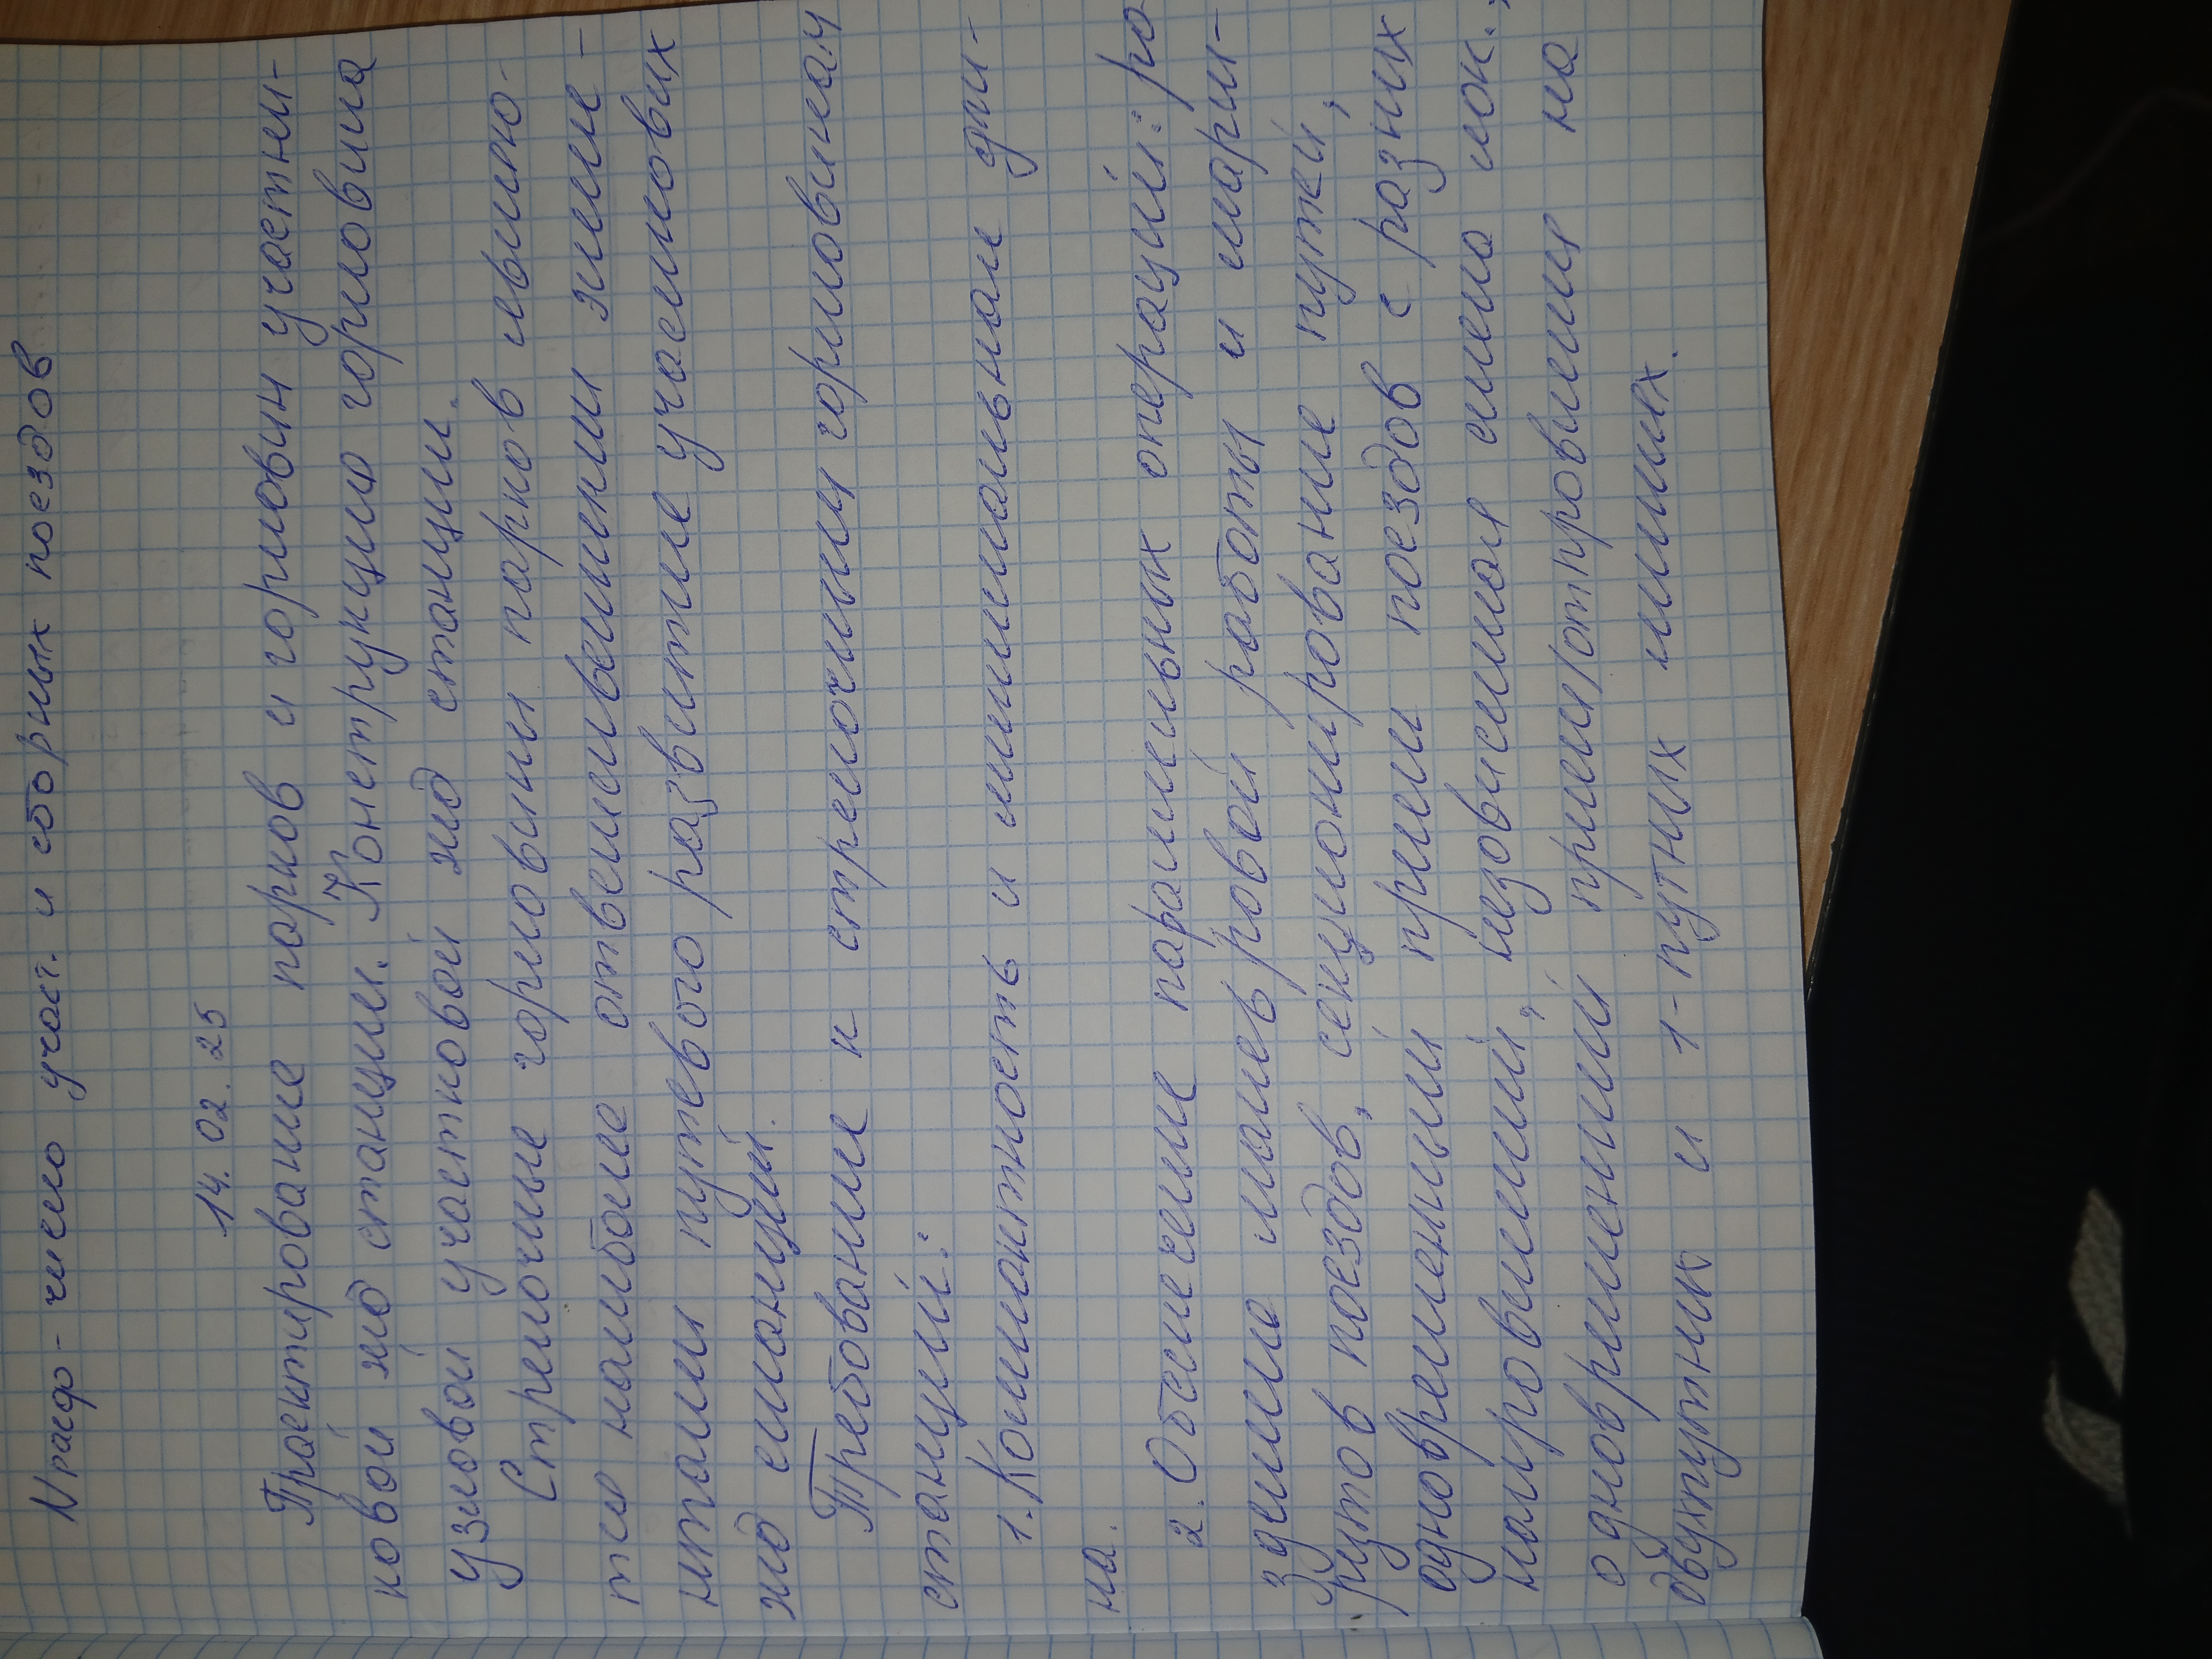 Nрасф - число участ. и сборных поездов
14. 02. 25
Проектирование парков и горловин участни-
ковой жд станции. Конструкция горловина
узловой участковой жд станции.
Стрелочные горловины парков являю-
тся наиболее ответственными элеме-
нтами путевого развитие участковых
жд станций.
Требование к стрелочным горловинам
станций:
1. Компактность и минимальная дли-
на.
2. Обеспечение параллельных операций: ра
зделила маневровой работы и маршр-
рутов поездов, секционирование путей,
одновременный прием поездов с разних
направлений, независимая смена лок.,
одновременний прием/отправления на
двухпутних и 1-путных линиях.